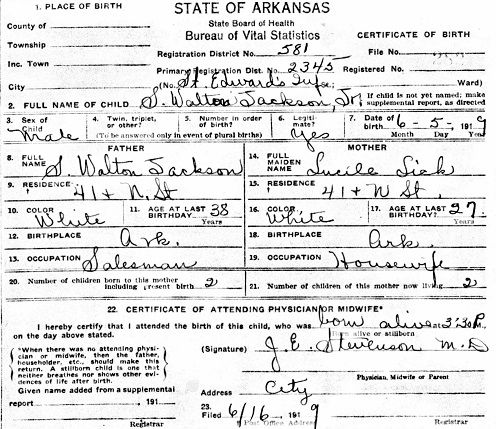 1. PLACE OF BIRTH
STATE OF ARKANSAS
State Board of Health
Bureau of Vital Statistics
CERTIFICATE OF BIRTH
County of
Township
Inc. Town
City
Registration District No. 581
File No.
Primary Registration Dist. No. 2345
Registered No.
(No. St. Edwards Inf St.; Ward)
2. FULL NAME OF CHILD S. Walton Jackson, Jr.
If child is not yet named; make supplemental report, as directed
3. Sex of Child Male
4. Twin, triplet, or other?
5. Number in order of birth?
(To be answered only in event of plural births)
6. Legitimate? Yes
7. Date of birth 6-5-1919
Month Day Year
FATHER
8. FULL NAME S. Walton Jackson
9. RESIDENCE 41 & N. St
10. COLOR White
11. AGE AT LAST BIRTHDAY 38
Years
12. BIRTHPLACE Ark.
13. OCCUPATION Salesman
MOTHER
14. FULL MAIDEN NAME Lucile
15. RESIDENCE 41 & N St.
16. COLOR White
17. AGE AT LAST BIRTHDAY? 27
Years
18. BIRTHPLACE Ark.
19. OCCUPATION Housewife
20. Number of children born to this mother including present birth 2
21. Number of children of this mother now living 2
22. CERTIFICATE OF ATTENDING PHYSICIAN OR MIDWIFE*
I hereby certify that I attended the birth of this child, who was born alive at 3:30 P.
Born alive or stillborn
on the day above stated.
*When there was no attending physi-
cian or midwife, then the father,
householder, etc., should make this
return. A stillborn child is one that
neither breathes nor shows other evi-
dences of life after birth.
(Signature) J. E. Stevenson M.D
Physician, Midwife or Parent
Given name added from a supplemental
report 191
Registrar
Address City
23.
Filed 6/16 1919
Post Office Address
Registrar